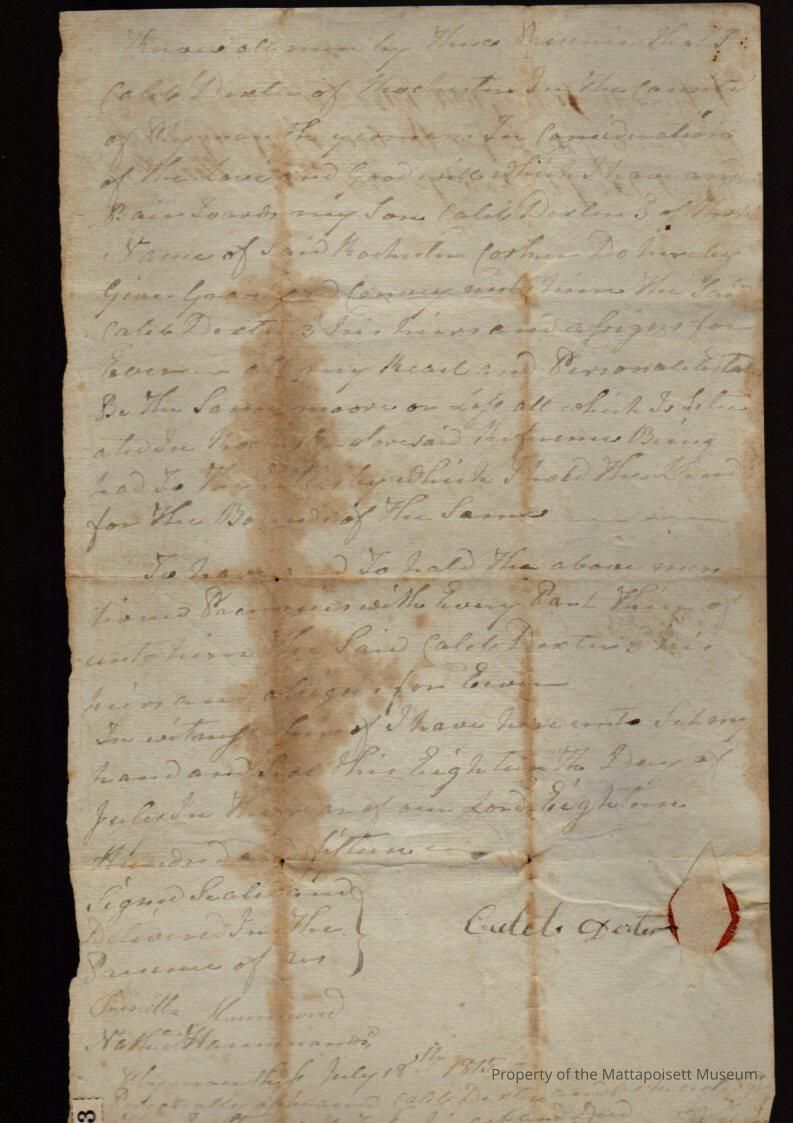 Know all men by These Presents that I
Caleb Dexter of Rochester In the County
of Plymouth yeoman In Consideration
of The Love and Good will which I have and
Bair Towards my Son Caleb Dexter 3 of that
Name of Said Rochester Do hereby
Give Grant and Convey unto him The Said
Caleb Dexter 3 his hiers and assigns for
Ever all my Real and Personal Estate
Be The Same moore or Less all which Is Situ
ate In Rochester aforesaid Reference Being
had To The by which I hold The Land
for The Bounds of The Same
To have and To hold The above men
tioned Premises with Every Part Thereof
unto him The Said Caleb Dexter 3 his
hiers and assigns for Ever
In witness hereof I have here unto Set my
hand and Seal This Eighteenth Day of
July In The year of our Lord Eighteen
Hundred and fifteen
Signed Sealed and
Delivered In The
Presence of us
Caleb Dexter
Priscilla Hammond
Nathl Hammond
Plymouth Ss July 18th 1815
Personally appeared Caleb Dexter and
Property of the Mattapoisett Museum
3